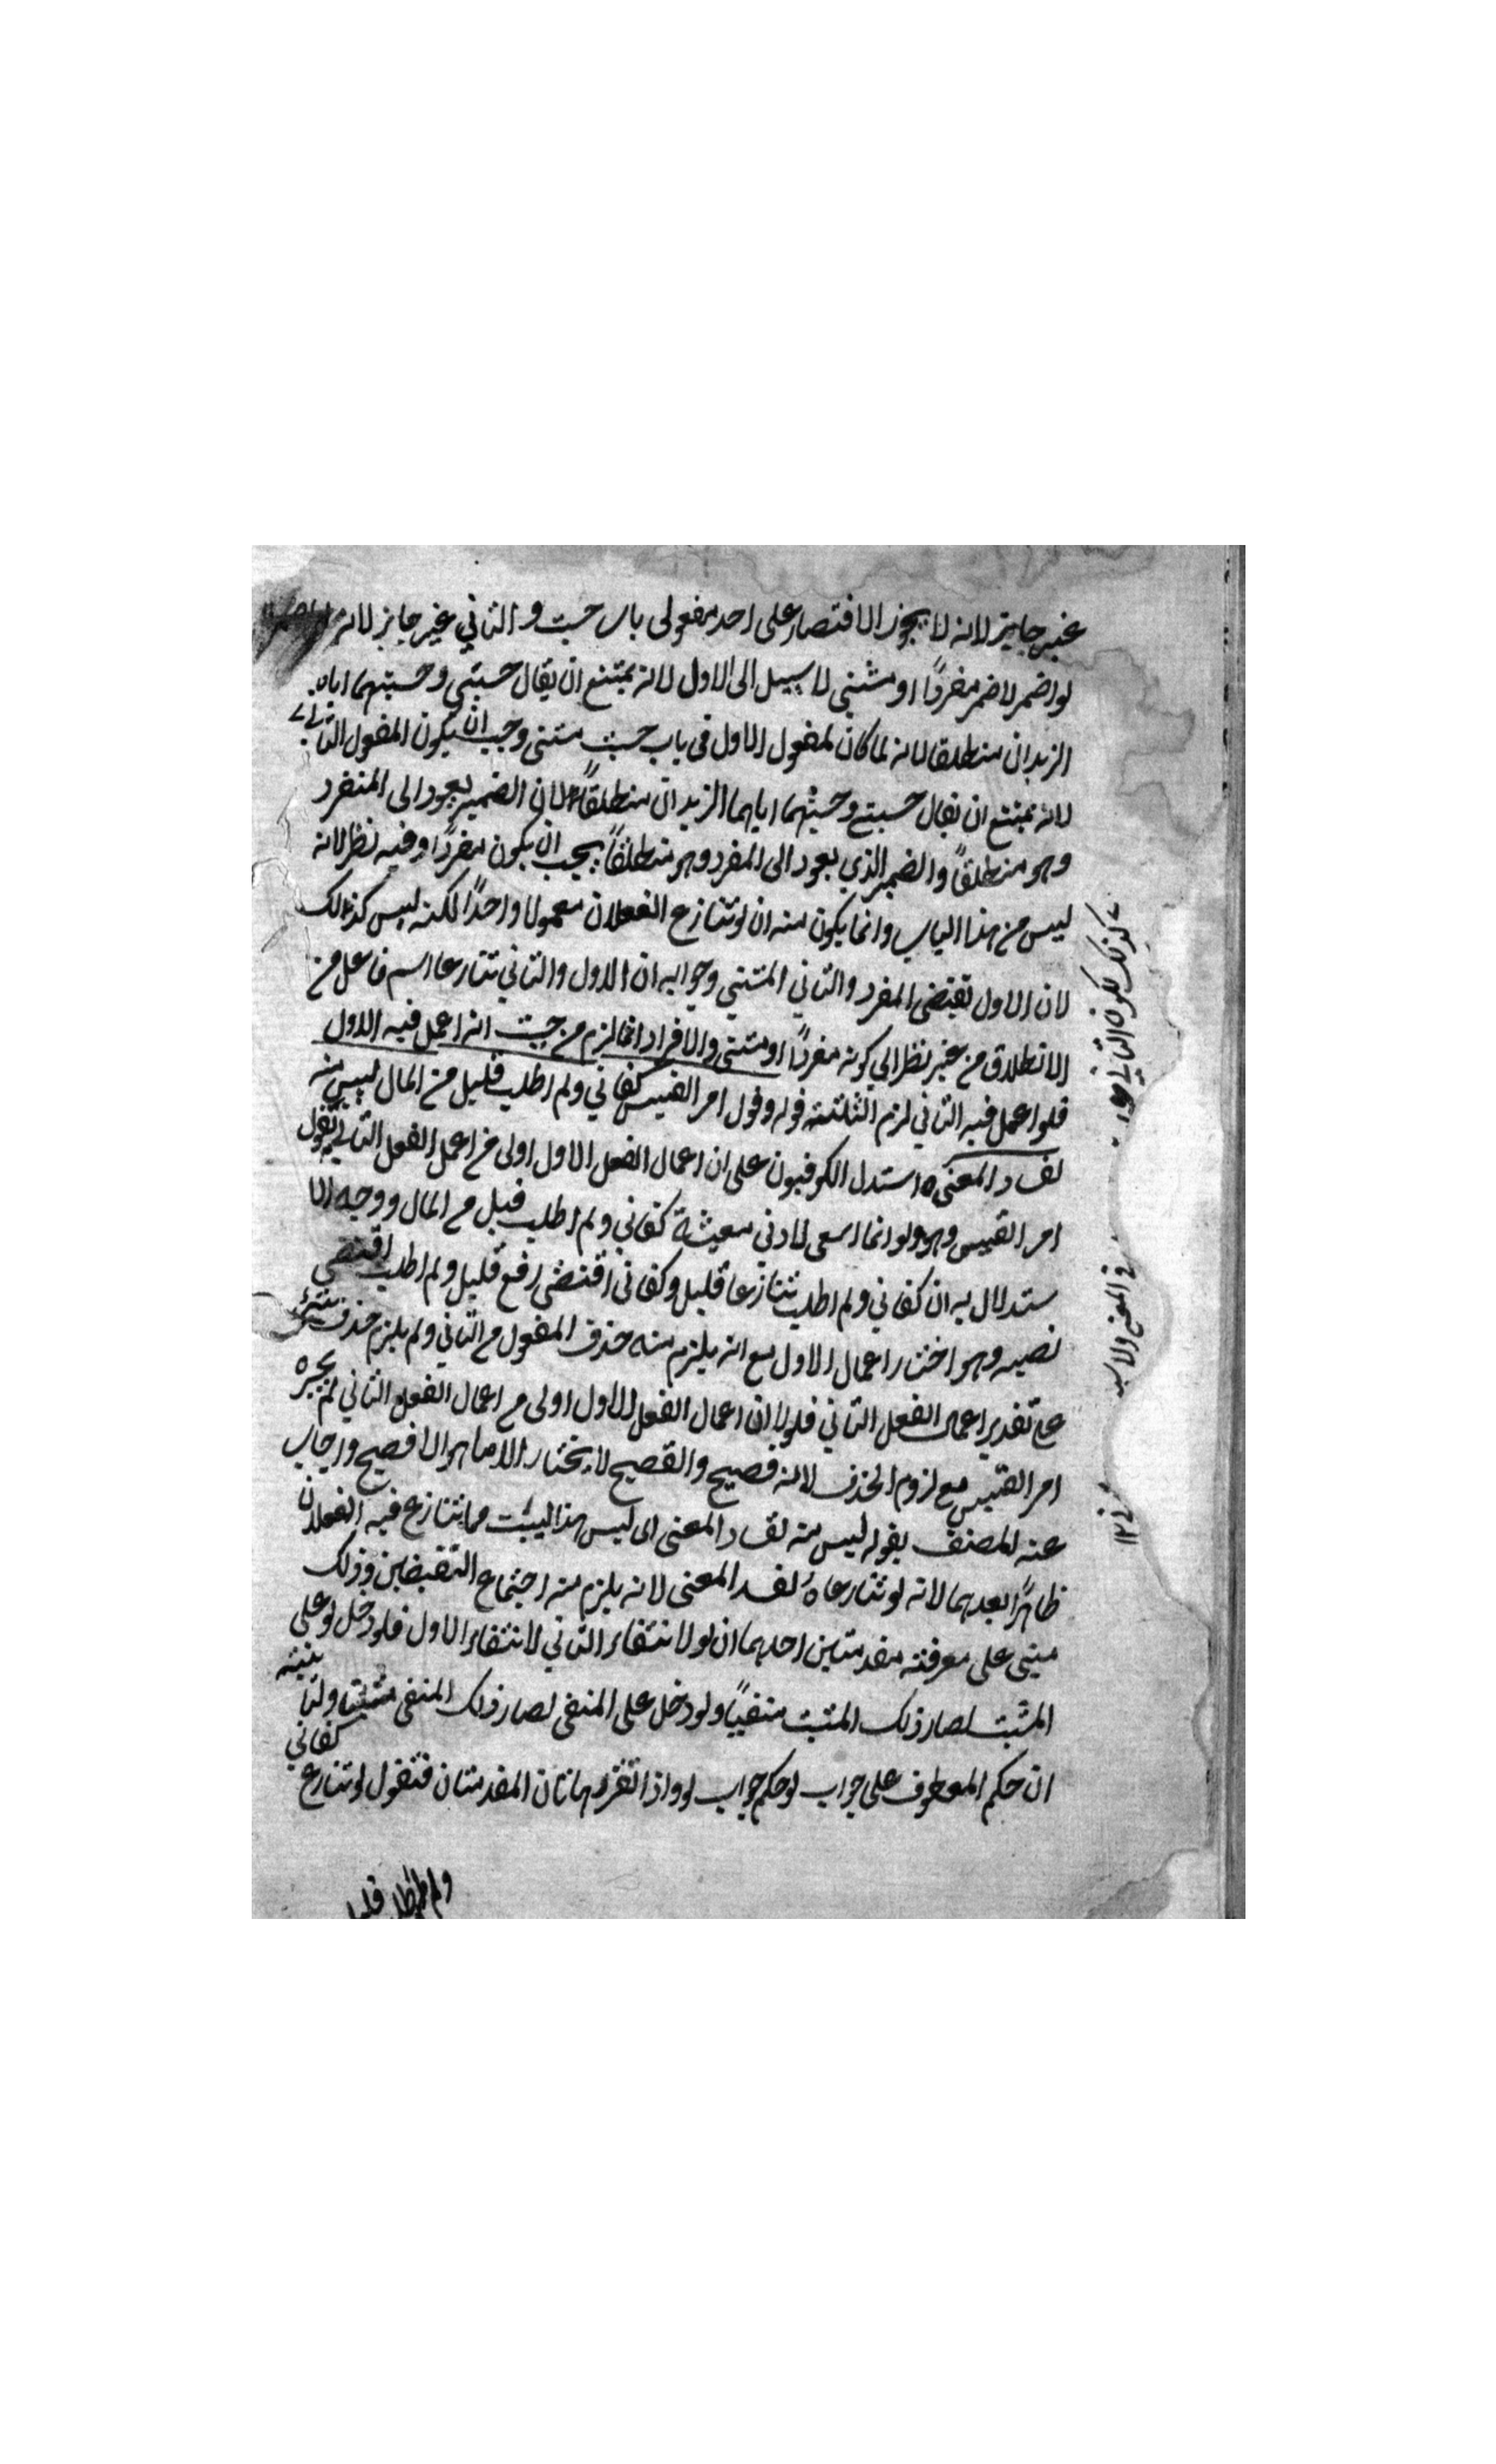 غير جايز لانه لا يجوز الاقتصار على احد مفعولى باب حسبت والثاني غير جايز لانه
لو اضمر لاضمر مفردًا او مثنى لا سبيل الى الاول لانه يمتنع ان يقال حسبني وحسبتهما اياه
الزيدان منطلقا لانه لما كان لمفعول الاول فى باب حسبت مثنى وجب ان يكون المفعول الثاني
لانه يمتنع ان يقال حسبني وحسبتهما اياهما الزيدان منطلقًا لان الضمير يعود الى المنفرد
وهو منطلقًا والضمير الذي يعود الى المفرد وهو منطلقًا يجب ان يكون مفردًا وفيه نظر لانه
ليس من هذا الباب وانما يكون منه ان لو تنازع الفعلان معمولا واحدًا لكنه ليس كذلك
لان الاول يقتضى المفرد والثاني المثنى وجوابه ان الاول والثاني تنازعا اسم فاعل من
الانطلاق من غير نظر الى كونه مفردًا او مثنى والافراد انما لزم من حيث انه اعمل فيه الاول
فلو اعمل فيه الثاني لزم التثنية قوله وقول امر القيس كفاني ولم اطلب قليل من المال ليس منه
لفساد المعنى ه استدل الكوفيون على ان اعمال الفعل الاول اولى من اعمل الفعل الثاني بقول
امر القيس وهو ولو انما اسعى لادني معيشة كفاني ولم اطلب قليل من المال ووجه الا
ستدلال به ان كفاني ولم اطلب تنازعا قليل وكفاني اقتضى رفع قليل ولم اطلب اقتضى
نصبه وهو اختار اعمال الاول مع انه يلزم منه حذف المفعول من الثاني ولم يلزم حذف شئ
على تقدير اعمال الفعل الثاني فلولا ان اعمال الفعل الاول اولى من اعمال الفعل الثاني لم يجيزه
امر القيس مع لزوم الحذف لانه فصيح والفصيح لا يختار الا ما هو الافصح واجاب
عنه المصنف بقوله ليس منه لفساد المعنى اى ليس هذا البيت مما تنازع فيه الفعلان
ظاهرًا بعدهما لانه لو تنازعاه لفسد المعنى لانه يلزم منه اجتماع النقيضين وذلك
مبنى على معرفته مقدمتين احدهما ان لو لانتفاء الثاني لانتفاء الاول فلو دخل لو على
المثبت لصار ذلك المثبت منفيًا ولو دخل على المنفى لصار ذلك المنفى مثبتا وثانيته
ان حكم المعطوف على جواب لو حكم جواب لو واذا تقرر هاتان المقدمتان فنقول لو تنازع كفاني
ولم اطلب قليل